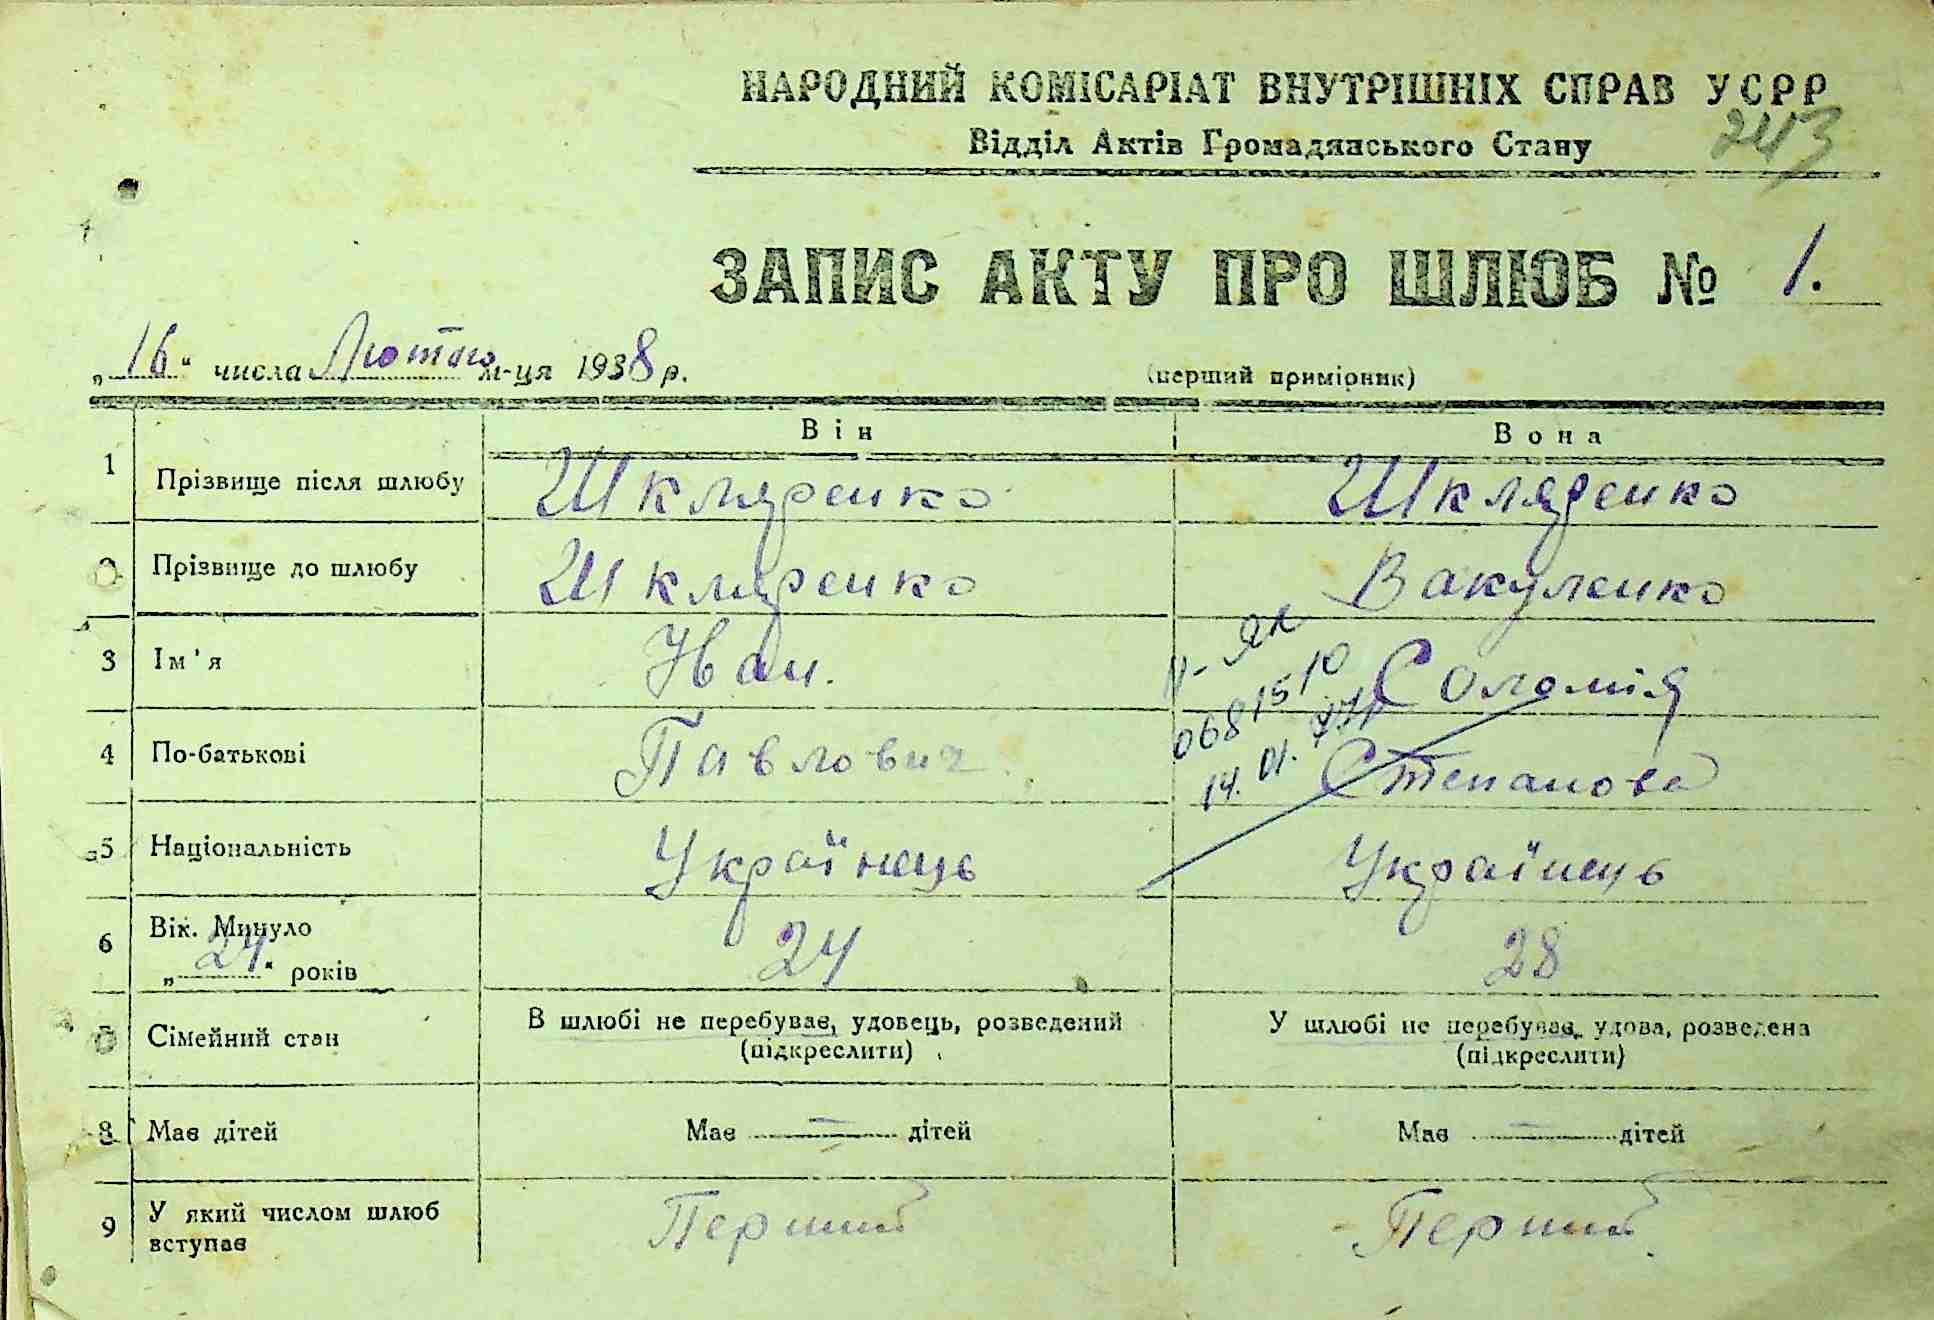 НАРОДНИЙ КОМІСАРІАТ ВНУТРІШНІХ СПРАВ УСРР
Відділ Актів Громадянського Стану
243
ЗАПИС АКТУ ПРО ШЛЮБ № 1.
„16" числа Лютого м-ця 1938 р.
(перший примірник)
Він
Вона
1 Прізвище після шлюбу Шкляренко Шкляренко
2 Прізвище до шлюбу Шкляренко Вакуленко
3 Ім'я Иван. Соломія
II-ЯК
0681510
14.01.
4 По-батькові Павлович Степанова
5 Національність Українець Українець
6 Вік. Минуло „24" років 24 28
7 Сімейний стан В шлюбі не перебував, удовець, розведений (підкреслити) У шлюбі не перебував, удова, розведена (підкреслити)
8 Має дітей Має — дітей Має — дітей
9 У який числом шлюб вступає Перший Перший